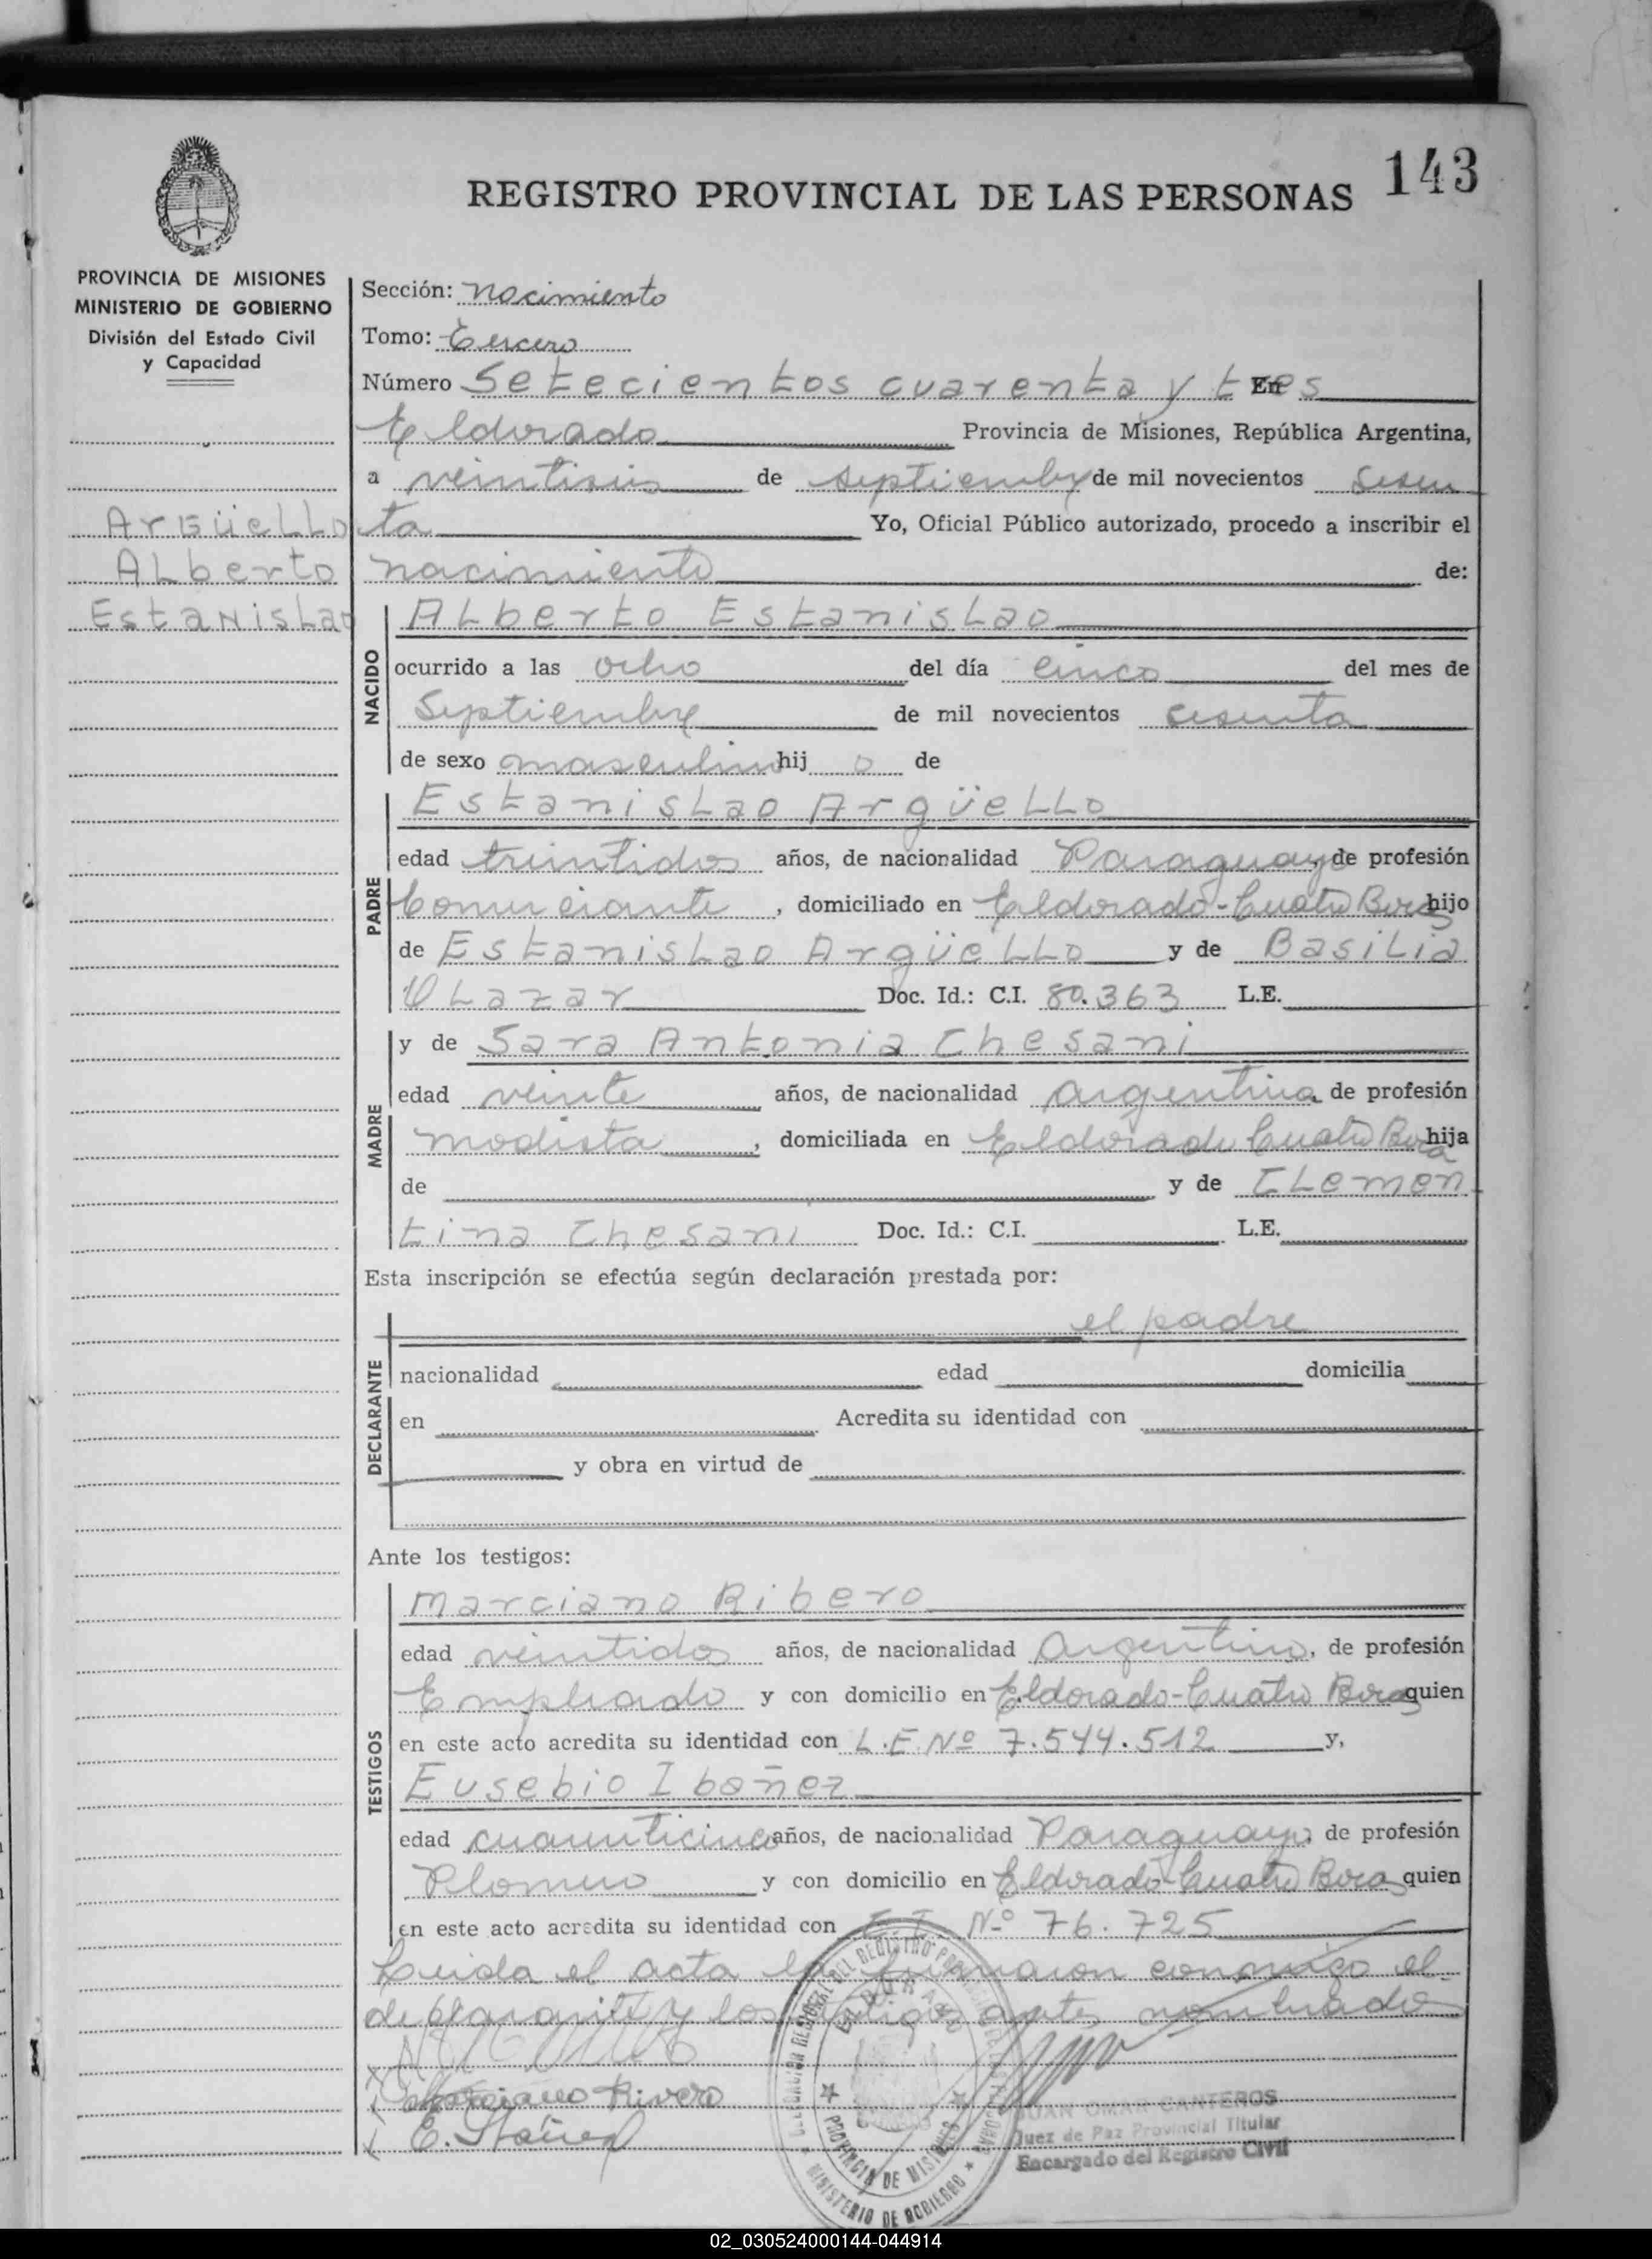 143
REGISTRO PROVINCIAL DE LAS PERSONAS
PROVINCIA DE MISIONES
MINISTERIO DE GOBIERNO
División del Estado Civil
y Capacidad
Argüello
Alberto
Estanislao
Sección: nacimiento
Tomo: Tercero
Número Setecientos cuarenta y tres En
Eldorado Provincia de Misiones, República Argentina,
a veintiseis de septiembre de mil novecientos sesen
ta Yo, Oficial Público autorizado, procedo a inscribir el
nacimiento de:
NACIDO
Alberto Estanislao
ocurrido a las ocho del día cinco del mes de
Septiembre de mil novecientos sesenta
de sexo masculino hij o de
PADRE
Estanislao Argüello
edad treintidos años, de nacionalidad Paraguay de profesión
Comerciante, domiciliado en Eldorado-Cuatro Bocas hijo
de Estanislao Argüello y de Basilia
Olazar Doc. Id.: C.I. 80.363 L.E.
MADRE
y de Sara Antonia Chesani
edad veinte años, de nacionalidad argentina de profesión
modista, domiciliada en Eldorado Cuatro Boca hija
de y de Clemen
tina Chesani Doc. Id.: C.I. L.E.
Esta inscripción se efectúa según declaración prestada por:
DECLARANTE
el padre
nacionalidad edad domicilia
en Acredita su identidad con
y obra en virtud de
Ante los testigos:
TESTIGOS
Marciano Ribero
edad veintidos años, de nacionalidad Argentino, de profesión
Empleado y con domicilio en Eldorado-Cuatro Bocas quien
en este acto acredita su identidad con L.E. Nº 7.544.512 y,
Eusebio Ibañez
edad cuarenticinco años, de nacionalidad Paraguayo, de profesión
Plomero y con domicilio en Eldorado-Cuatro Bocas quien
en este acto acredita su identidad con Nº 76.725
Leida el acta la firmaron conmigo el
declarante y los testigos antes nombrado
Marciano Rivero
E. Ibáñez
PROVINCIA DE MISIONES
MINISTERIO DE GOBIERNO
JUAN OMAR CANTEROS
Juez de Paz Provincial Titular
Encargado del Registro Civil
02_030524000144-044914